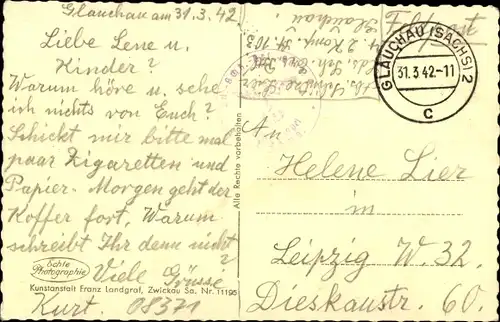 Glauchau am 31.3.42
Liebe Lene u.
Kinder?
Warum höre u. sehe
ich nichts von Euch?
Schickt mir bitte mal
paar Zigaretten und
Papier. Morgen geht der
Koffer fort. Warum
schreibt Ihr denn nicht?
Viele Grüsse
Kurt.
08371
Echte
Photographie
Kunstanstalt Franz Landgraf, Zwickau Sa. Nr. 11195
Alle Rechte vorbehalten
Feldpost
Glauchau
GLAUCHAU (SACHS) 2
31.3.42-11
c
An
Helene Lier
in
Leipzig W. 32.
Dieskaustr. 60.